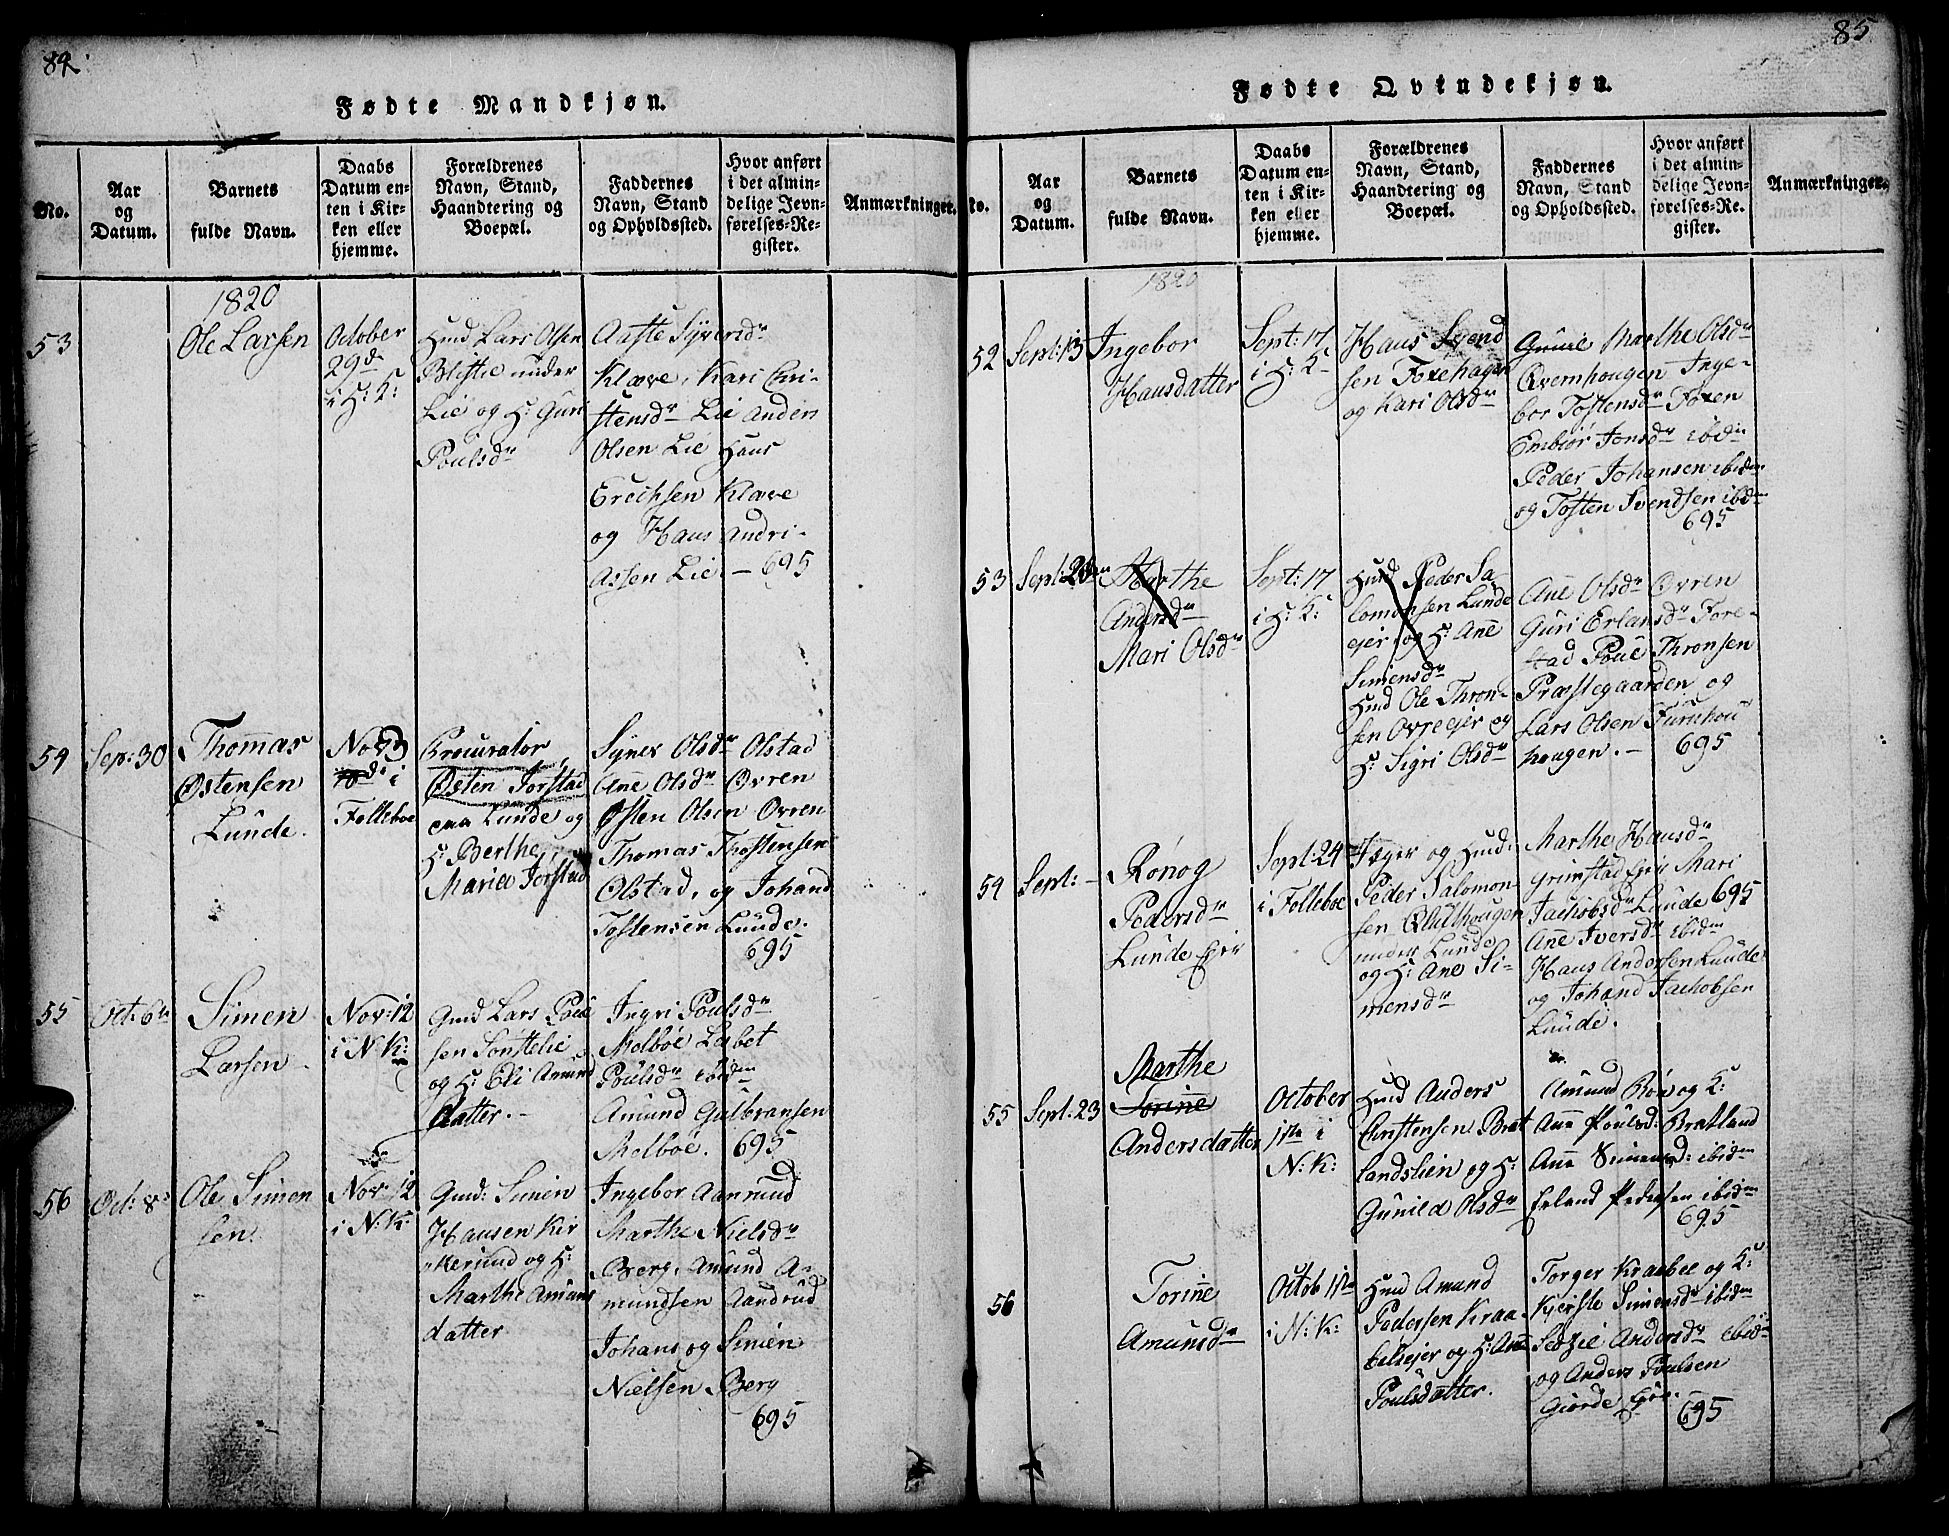 84
Fødte Mandkjøn.
No.
Aar
og
Datum.
Barnets
fulde Navn.
Daabs
Datum en-
ten i Kir-
ken eller
hjemme.
Forældrenes
Navn, Stand,
Haandtering og
Boepæl.
Faddernes
Navn, Stand
og Opholdssted.
Hvor anført
i det almin-
delige Jevn-
førelses-Re-
gister.
Anmærkninger.
1820
53
Ole Larsen
October
29d
i H: K:
Huud Lars Olsen
Blistie under
Lie og H: Guri
Poulsdr
Aaste Syversdr
Klæve, Kari Cri-
stensdr Lie Anders
Olsen Lie Hans
Erichsen Klæve
og Hans Andri-
assen Lie – 695
54
Sep: 30
Thomas
Østensen
Lunde.
Nov 3
i
Folleboe
Procurator
Østen Jørstad
paa Lunde og
H: Berthe
Maria Jørstad
Synev Olsdr Olstad
Ane Olsdr Ovren
Østen Olsen Ovren
Thomas Thostensen
Olstad, og Johand
Tostensen Lunde.
695
55
Oct: 6te
Simen
Larsen
Nov: 12
i N: K:
Gmd Lars Poul
sen Sønstelie
og H: Eli Amund
datter. –
Ingri Poulsdr
Melbøe Lisbet
Poulsdr ibidm
Amund Gulbransen
Melbøe. 695
56
Oct: 8
Ole Simen
sen.
Nov: 12
i N: K:
Gmd: Simen
Hansen Kir
kerud og H:
Marthe Amuns
datter
Ingebor Aanrud
Marthe Nielsdr
Berg, Amund A-
mundsen Aandrud
Johans og Simen
Nielsen Berg
695
85
Fødte Qvindekjøn.
No.
Aar
og
Datum.
Barnets
fulde Navn.
Daabs
Datum en-
ten i Kir-
ken eller
hjemme.
Forældrenes
Navn, Stand,
Haandtering og
Boepæl.
Faddernes
Navn, Stand
og Opholdssted.
Hvor anført
i det almin-
delige Jevn-
førelses-Re-
gister.
Anmærkninger.
1820
52
Sept: 13
Ingebor
Hansdatter
Sept: 17
i H: K:
Hans Svend
sen Forehagen
og Kari Olsdr
Marthe Olsdr
Qvernhougen Inge-
bor Tostensdr Foren
Embiør Jonsdr ibidm
Peder Johansen ibidm
og Tosten Svendsen ibidm
695
53
Sept:
Marthe
Andersdr
Mari Olsdr
Sept: 17
i H: K:
Huud Peder Sa-
lomonsen Lunde
ejer og H: Ane
Simensdr
Huud Ole Thron-
sen Ovreejer og
H: Sigri Olsdr
Ane Olsdr Ovren
Guri Erlansdr Fore-
stad Poul Thronsen
Præstegaarden og
Lars Olsen Furuhou
hougen. – 695
54
Sept: –
Rønog
Pedersdr
Lunde Ejer
Sept: 24
i Folleboe
Jæger og Huud:
Peder Salomon-
sen
under Lunde
og H: Ane Si-
mensdr
Marthe Hansdr
Grimstad Ejer Mari
Jachobsdr Lunde 695
Ane Iversdr ibidm
Hans Andersen Lunde
og Johand Jachobsen
Lunde.
55
Sept: 23
Marthe
Torine
Andersdatter
October
1ste i
N: K:
Huud Anders
Christensen Brat
landslien og H:
Gunild Olsdr
Amund Røn og K:
Ane Poulsd: Bratland
Ane Simensd: ibidm
Erland Pedersen ibidm
695
56
Torine
Amunsdr
Octob 1ste
i N: K:
Huud Amund
Pedersen Kraa-
belsejer og H: Ane
Poulsdatter.
Torger Kraabel og K:
Kjerste Simensdr ibidm
Andersdr ibidm
og Anders Poulsen
695